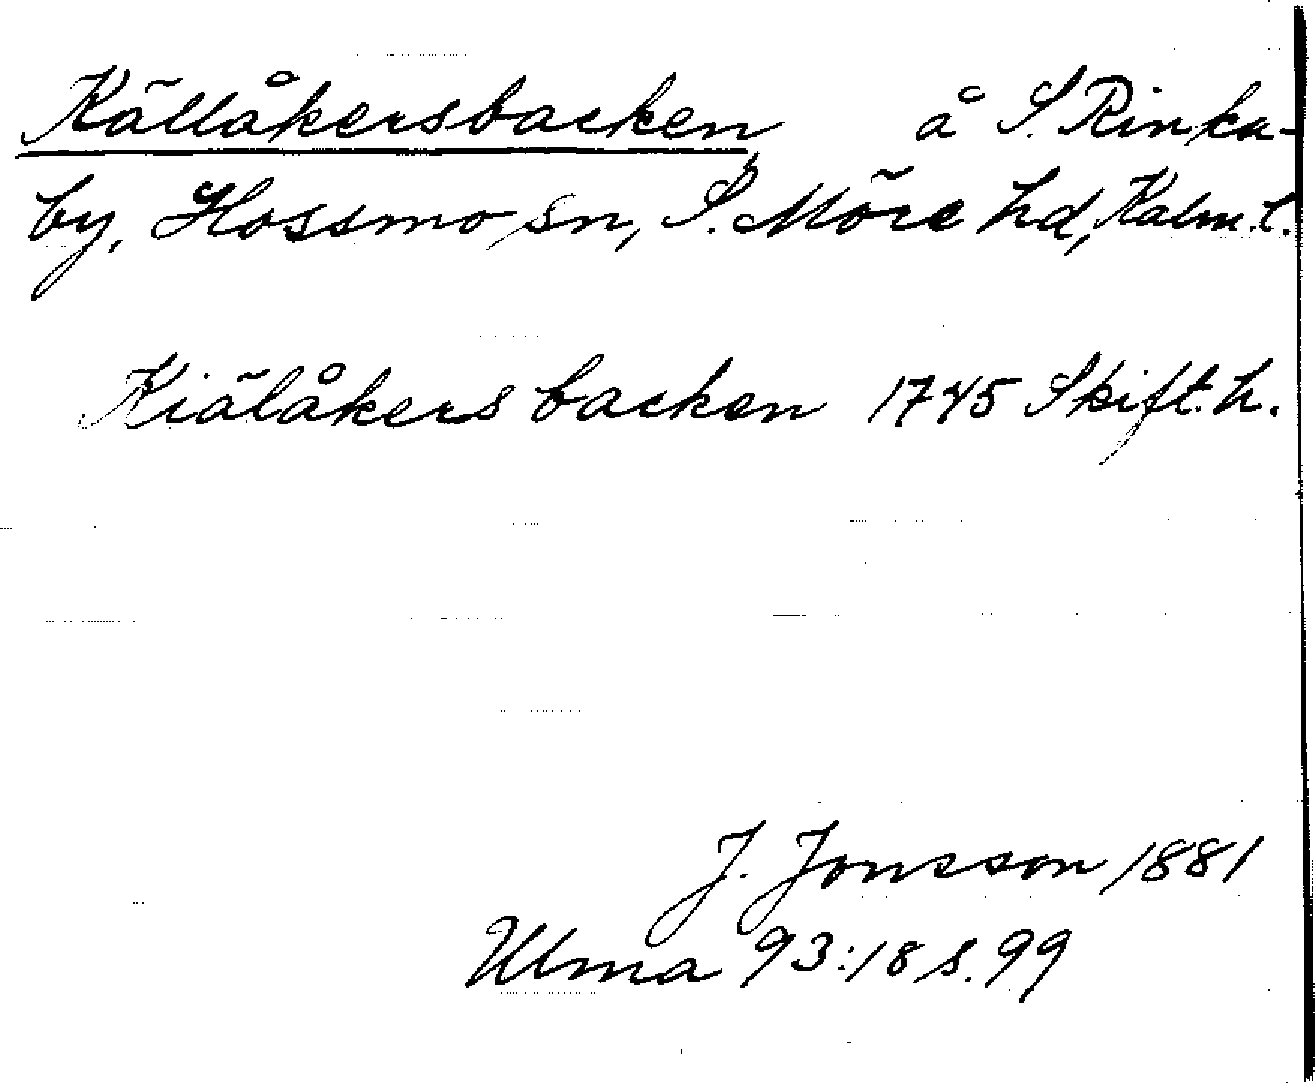 Källåkersbacken å S. Rinka-
by, Hossmo sn, S. Möre hd, Kalm. l.
Kiälåkers backen 1745 Skift. h.
J. Jonsson 1881
Ulma 93:18 s. 99